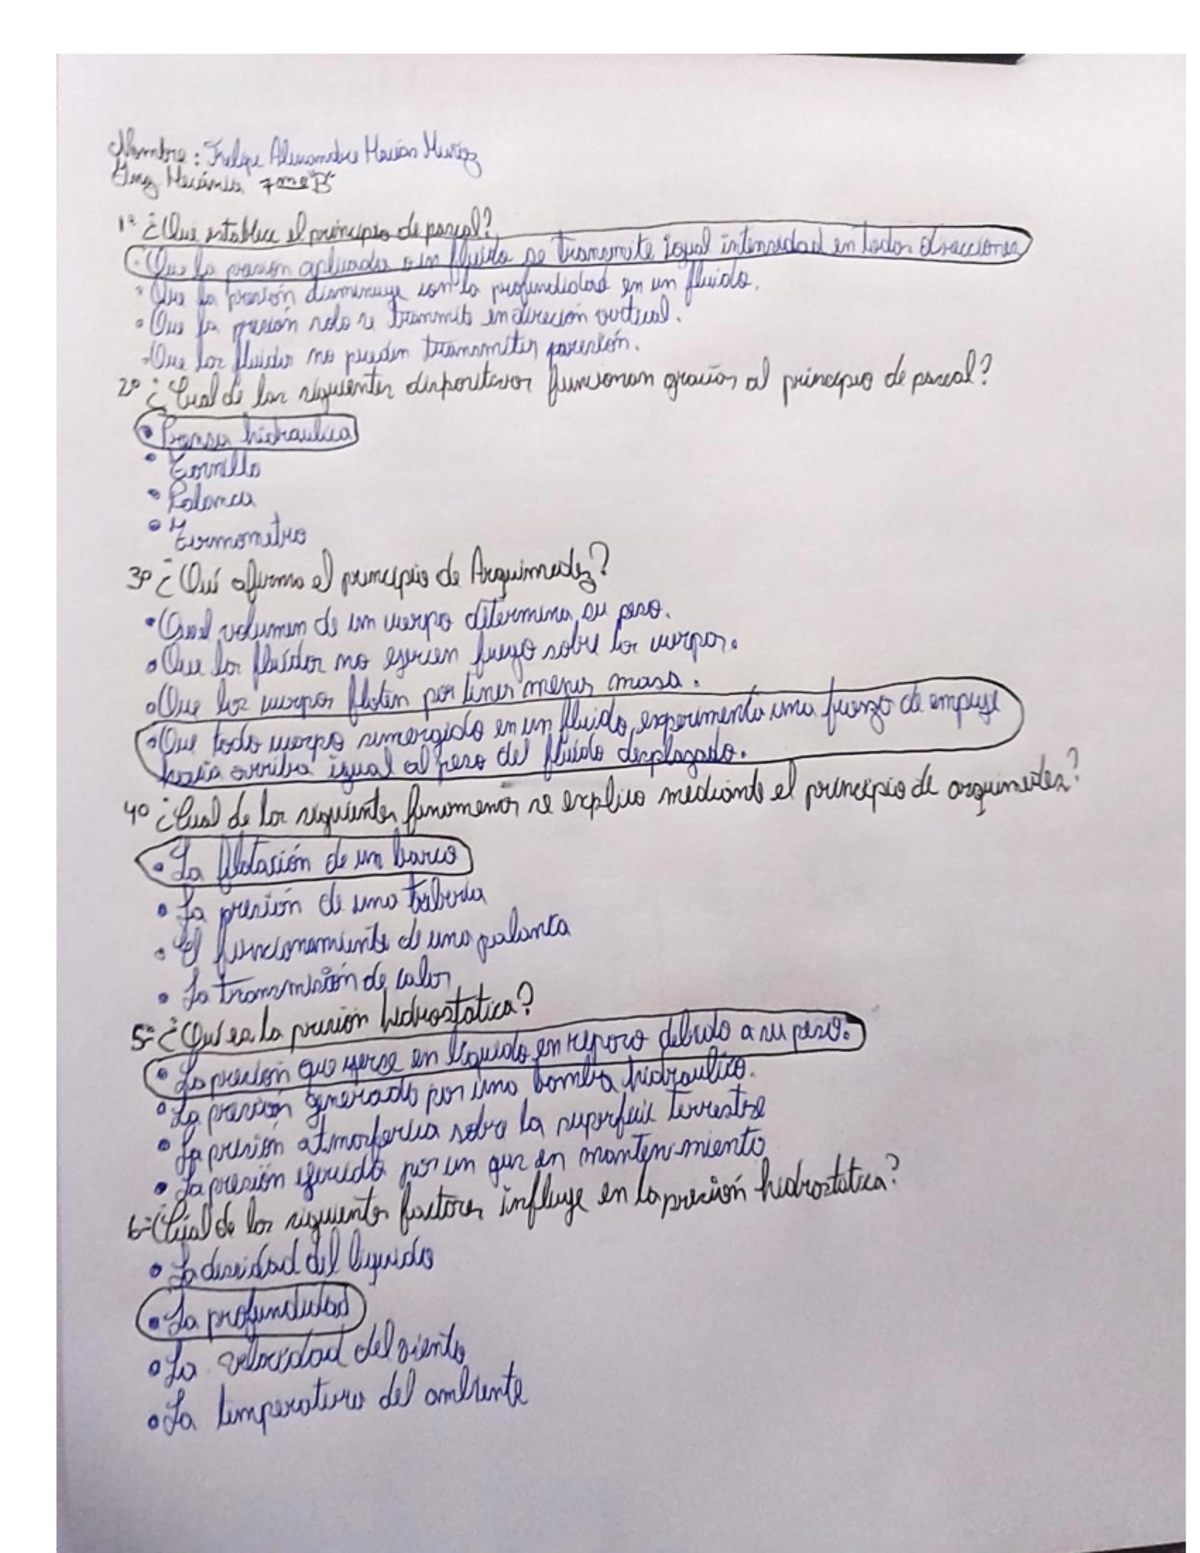 Nombre: Felipe Alexandre Macías Muñoz
Ing Mecánica 7mo "B"
1º ¿Que establece el principio de pascal?
• Que la presión aplicada a un fluido se transmite igual intensidad en todas direcciones
• Que la presión disminuye con la profundidad en un fluido.
• Que la presión solo se transmite en direción vertical.
• Que los fluidos no pueden transmitir presión.
2º ¿Cual de los siguientes dispositivos funcionan gracias al principio de pascal?
• Prensa hidraulica
• Tornillo
• Palanca
• Termometro
3º ¿Qué afirma el principio de Arquimedez?
• Que el volumen de un cuerpo determina su peso.
• Que los fluídos no ejercen fuerza sobre los cuerpos.
• Que los cuerpos floten por tener menos masa.
• Que todo cuerpo sumergido en un fluido, experimenta una fuerza de empuje
hacia arriba igual al peso del fluído desplazado.
4º ¿Cual de los siguientes fenomenos se explica mediante el principio de arquimedes?
• La flotación de un barco
• La presión de una tuberia
• El funcionamiento de una palanca
• La transmisión de calor
5º ¿Que es la presión hidrostática?
• La presión que ejerse en liquido en reposo debido a su peso.
• La presión generada por una bomba hidraulica.
• La presión atmosferica sobre la superficie terrestre
• La presión ejercida por un gas en mantenimiento
6º ¿Cúal de los siguientes factores influye en la presión hidrostática?
• La densidad del liquido
• La profundidad
• La velocidad del viento
• La temperatura del ambiente